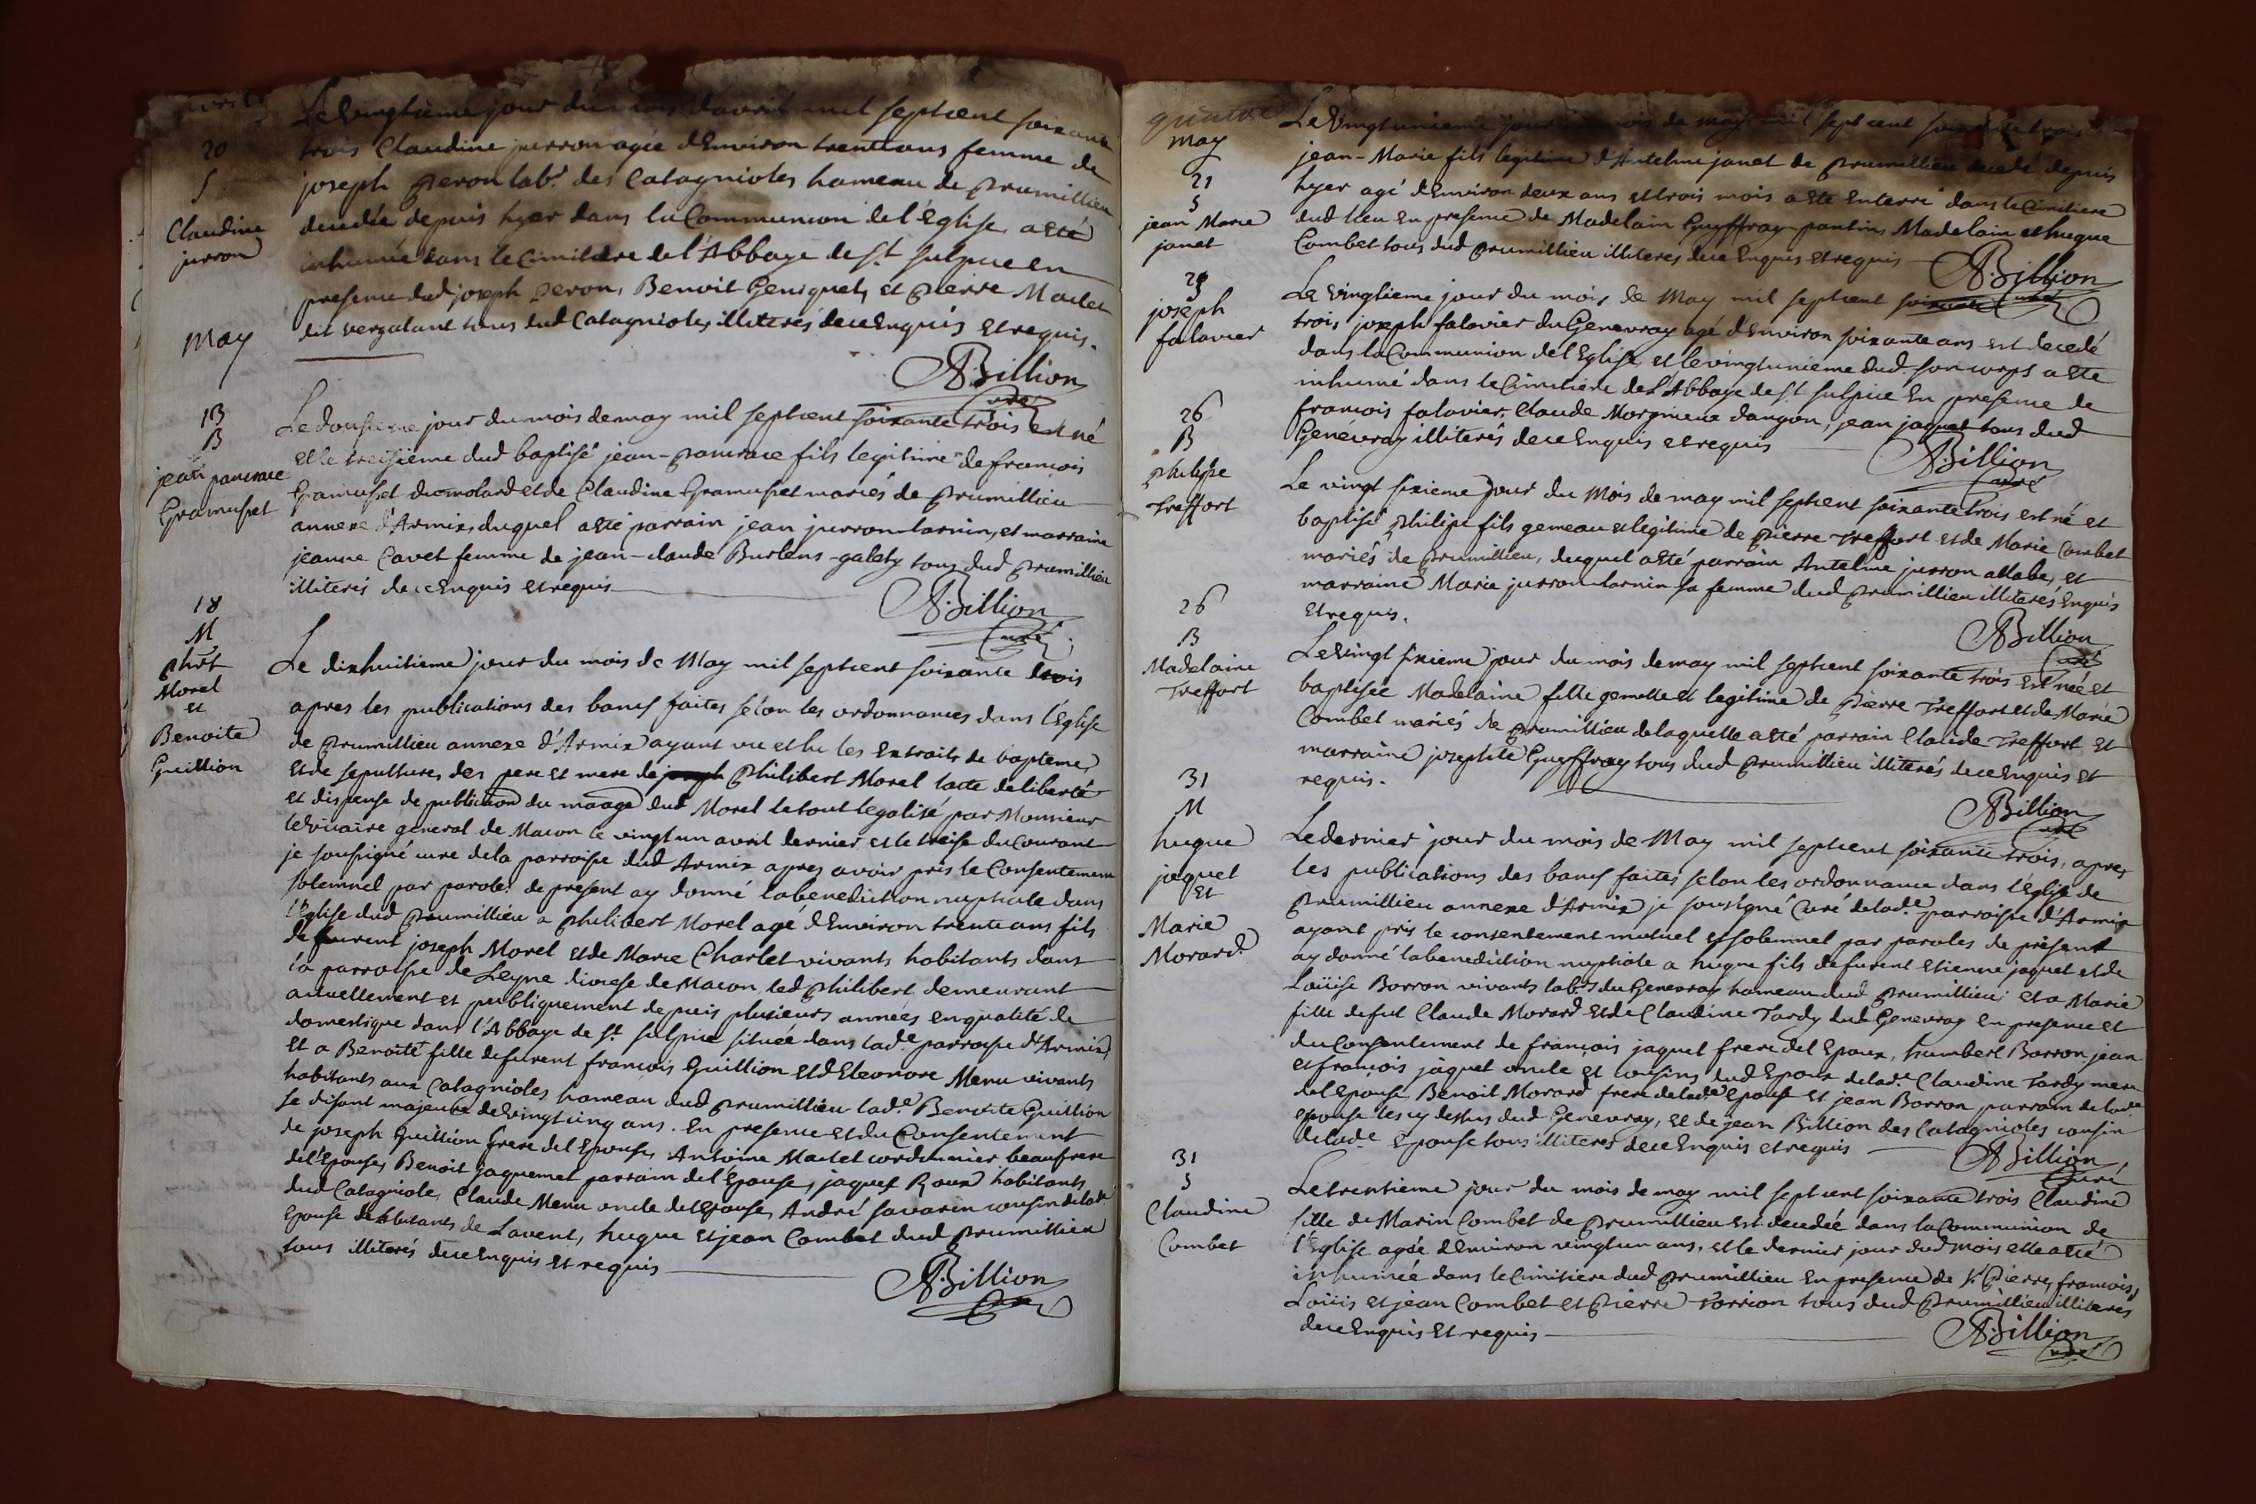 avril
20
S
Claudine
jurron
Le vingtieme jour du mois davril mil sept cent soixante
trois Claudine jurron agée d'Environ trente ans femme de
joseph peron lab.r des Catagnioles hameau de prumillieu
decedée depuis hyer dans la Communion de l'Eglise, a Eté
inhumée dans le Cimitiere de l'Abbaye de S.t Sulpice en
presence dud joseph peron, Benoit Geniquet, et pierre Martel
dit vergalant tous dud Catagnioles illiterés de ce Enquis et requis.
ABillion
curé
May
13
B
jean pancrace
Gramusset
Le dousieme jour du mois de may mil sept cent soixante trois est né
et le treisieme dud baptisé jean-pancrace fils legitime de francois
Gramusset du molard et de Claudine Gramusset mariés de prumillieu
annexe d'Armix, duquel a eté parrain jean jurron-tarnin, et marraine
jeanne Cavet femme de jean-claude Burlens-galety tous dud prumillieu
illiterés de ce Enquis et requis
ABillion
Curé
18
M
phirt
Morel
et
Benoite
Guillion
Le dixhuitieme jour du mois de May mil sept cent soixante trois
apres les publications des bancs faites selon les ordonnances dans l'Eglise
de prumillieu annexe d'Armix ayant vu et lu les Extraits de bapteme
et de sepultures des pere et mere de joseph philibert Morel l'acte de liberté
et dispense de publication du maage dud Morel le tout legalisé par Monsieur
le vicaire general de Macon le vingt un avril dernier et le treise du Courant
je soussigné curé de la parroisse dud Armix apres avoir pris le Consentement
solemnel par paroles de present ay donné la benediction nuptiale dans
l'Eglise dud prumillieu a philibert Morel agé d'Environ trente ans fils
de furent joseph Morel et de Marie Charlet vivants habitants dans
la parroisse de Leyne diocese de Macon, led philibert demeurant
actuellement et publiquement depuis plusieurs années en qualité de
domestique dans l'Abbaye de S.t Sulpice située dans lad.e parroisse d'Armix,
et a Benoite fille de furent francois Guillion et d'Eleonore Menu vivants
habitants aux Catagnioles hameau dud prumillieu lad.e Benoite Guillion
se disant majeure de vingt cinq ans. En presence et du Consentement
de joseph Guillion frere de l'Epouse, Antoine Martel cordonnier beaufrere
de l'Epouse, Benoit jaquemet parrain de l'Epouse, jaques Roux habitants
dud Catagniole, Claude Menu oncle de l'Epouse, André savarin cousin de lad.e
Epouse habitants de Lavent, hugue et jean Combet dud prumillieu
tous illiterés de ce Enquis et requis
ABillion
Curé
quatre
may
21
S
jean Marie
janet
Le vingtunieme jour du mois de may mil sept cent soixante trois
jean-Marie fils legitime d'Antelme janet de prumillieu decedé depuis
hyer agé d'Environ deux ans et trois mois a Eté Enterré dans le Cimitiere
dud lieu en presence de Madelain Gueffray-pantin, Madelain et hugue
Combet tous dud prumillieu illiterés de ce Enquis et requis
ABillion
curé
S
joseph
falavier
Le vingtieme jour du mois de May mil sept cent soixante
trois joseph falavier du Genevray agé d'Environ soixante ans est decedé
dans la Communion de l'Eglise, et le vingtunieme dud. son corps a Eté
inhumé dans le Cimitiere de l'Abbaye de S.t Sulpice En presence de
francois falavier, Claude Morgnieux dangon, jean jaquet tous dud
Genévray illiterés de ce Enquis et requis
ABillion
curé
26
B
philipe
Treffort
Le vingt sixieme jour du Mois de may mil sept cent soixante trois est né et
baptisé philipe fils gemeau et legitime de pierre Treffort et de Marie Combet
mariés de prumillieu, duquel a eté parrain Antelme jurron allabe, et
marraine Marie jurron-tarnin sa femme dud prumillieu illiterés Enquis
et requis.
ABillion
Curé
26
B
Madelaine
Treffort
Le vingt sixieme jour du mois de may mil sept cent soixante trois est née et
baptisée Madelaine fille gemelle et legitime de pierre Treffort et de Marie
Combet mariés de prumillieu de laquelle a eté parrain Claude Treffort et
marraine josephte Gueffray tous dud prumillieu illiterés de ce Enquis et
requis.
ABillion
curé
31
M
hugue
jaquet
Et
Marie
Morard
Le dernier jour du mois de May mil sept cent soixante trois, apres
les publications des bancs faites selon les ordonnance dans l'Eglise de
prumillieu annexe d'Armix je soussigné Curé de lad.e parroisse d'Armix
ayant pris le consentement mutuel et solemnel par paroles de présent
ay donné la benediction nuptiale a hugue fils de furent Etienne jaquet et de
Loüise Borron vivants lab.rs du Genevray hameau dud prumillieu et a Marie
fille de fut Claude Morard et de Claudine Tardy dud Genevray en presence et
du Consentement de françois jaquet frere de l'Epoux, humbert Borron, jean
et françois jaquet oncle et cousins dud Epoux de lad.e Claudine Tardy mere
de l'Epouse Benoit Morard frere de lad.e Epouse et jean Borron parrain de lad.e
epouse les cy dessus dud Genevray, et de jean Billion des Catagnioles cousin
de lad.e Epouse tous illiterés de ce Enquis et requis
ABillion
Curé
31
S
Claudine
Combet
Le trentieme jour du mois de may mil sept cent soixante trois Claudine
fille de Marin Combet de prumillieu est decedée dans la Communion de
l'Eglise agée d'Environ vingt un ans, et le dernier jour dud mois elle a eté
inhumée dans le Cimitiere dud prumillieu En presence de pierre, francois,
Loüis et jean Combet et pierre Torrion tous dud prumillieu illiterés
de ce Enquis et requis
ABillion
Curé